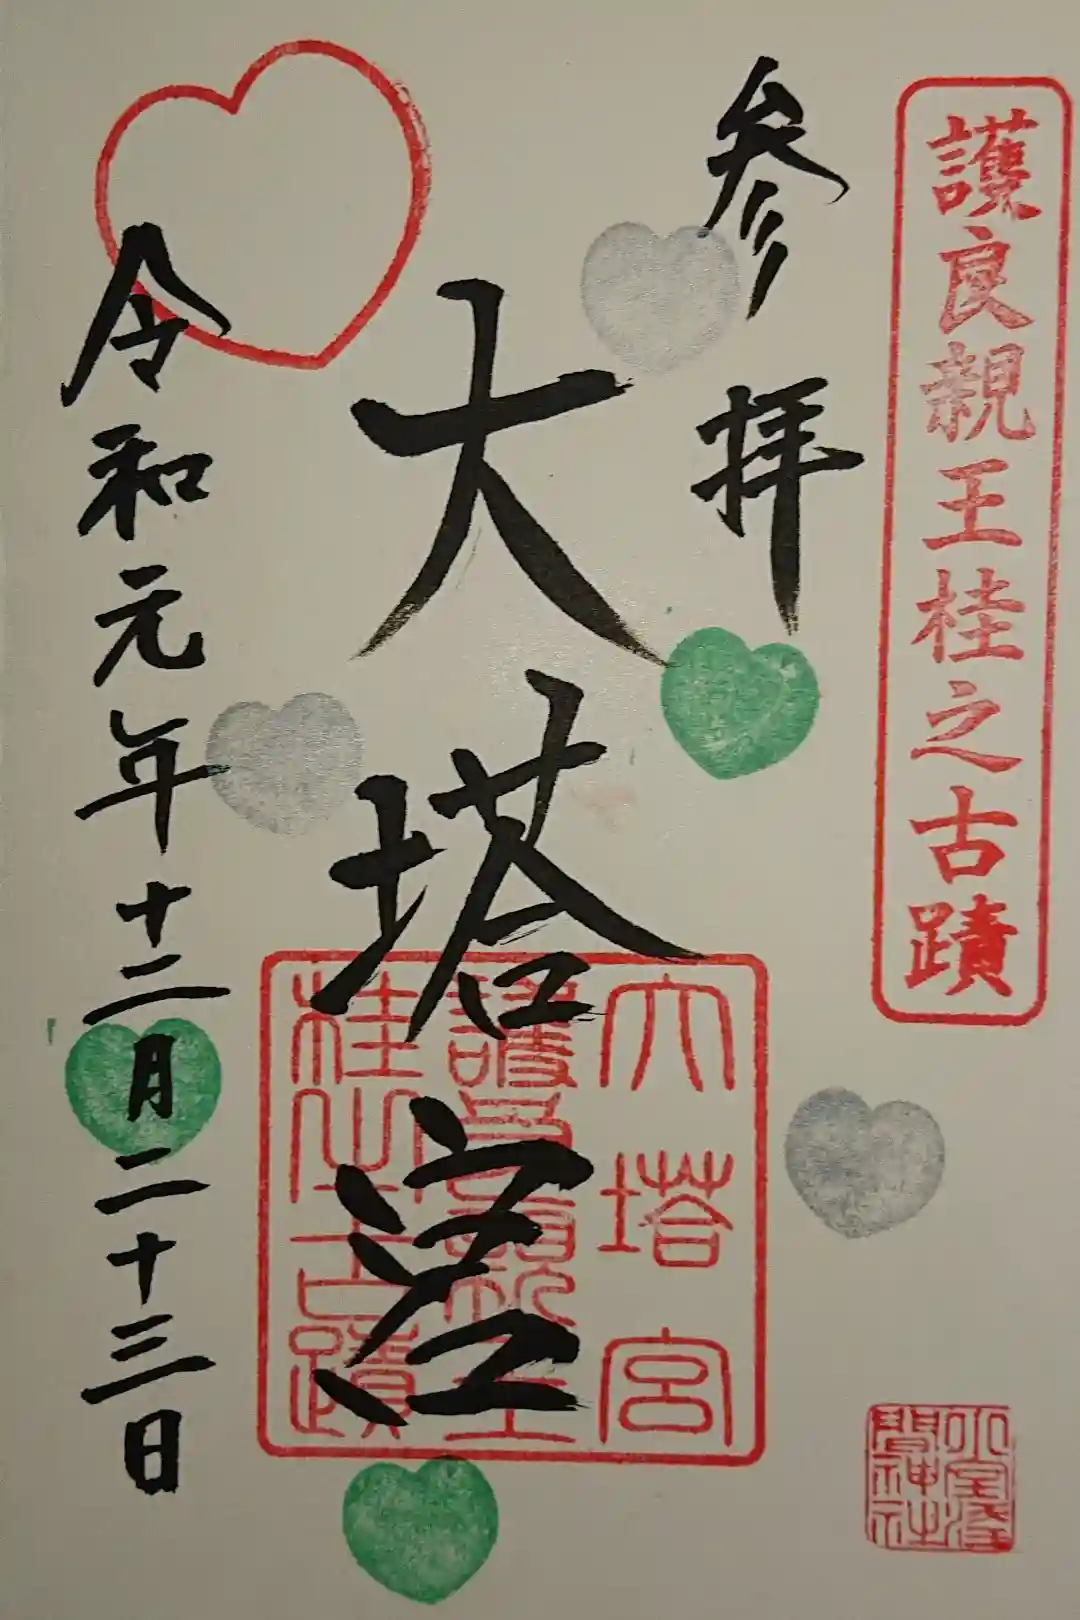 護良親王桂之古蹟
参拝
大塔宮
令和元年十二月二十三日
大塔宮
護良親王
桂之古蹟